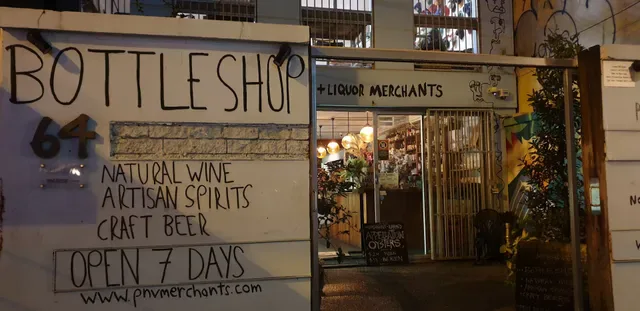 BOTTLESHOP
+ LIQUOR MERCHANTS
64
NATURAL WINE
ARTISAN SPIRITS
CRAFT BEER
OPEN 7 DAYS
www.pnvmerchants.com
OYSTERS